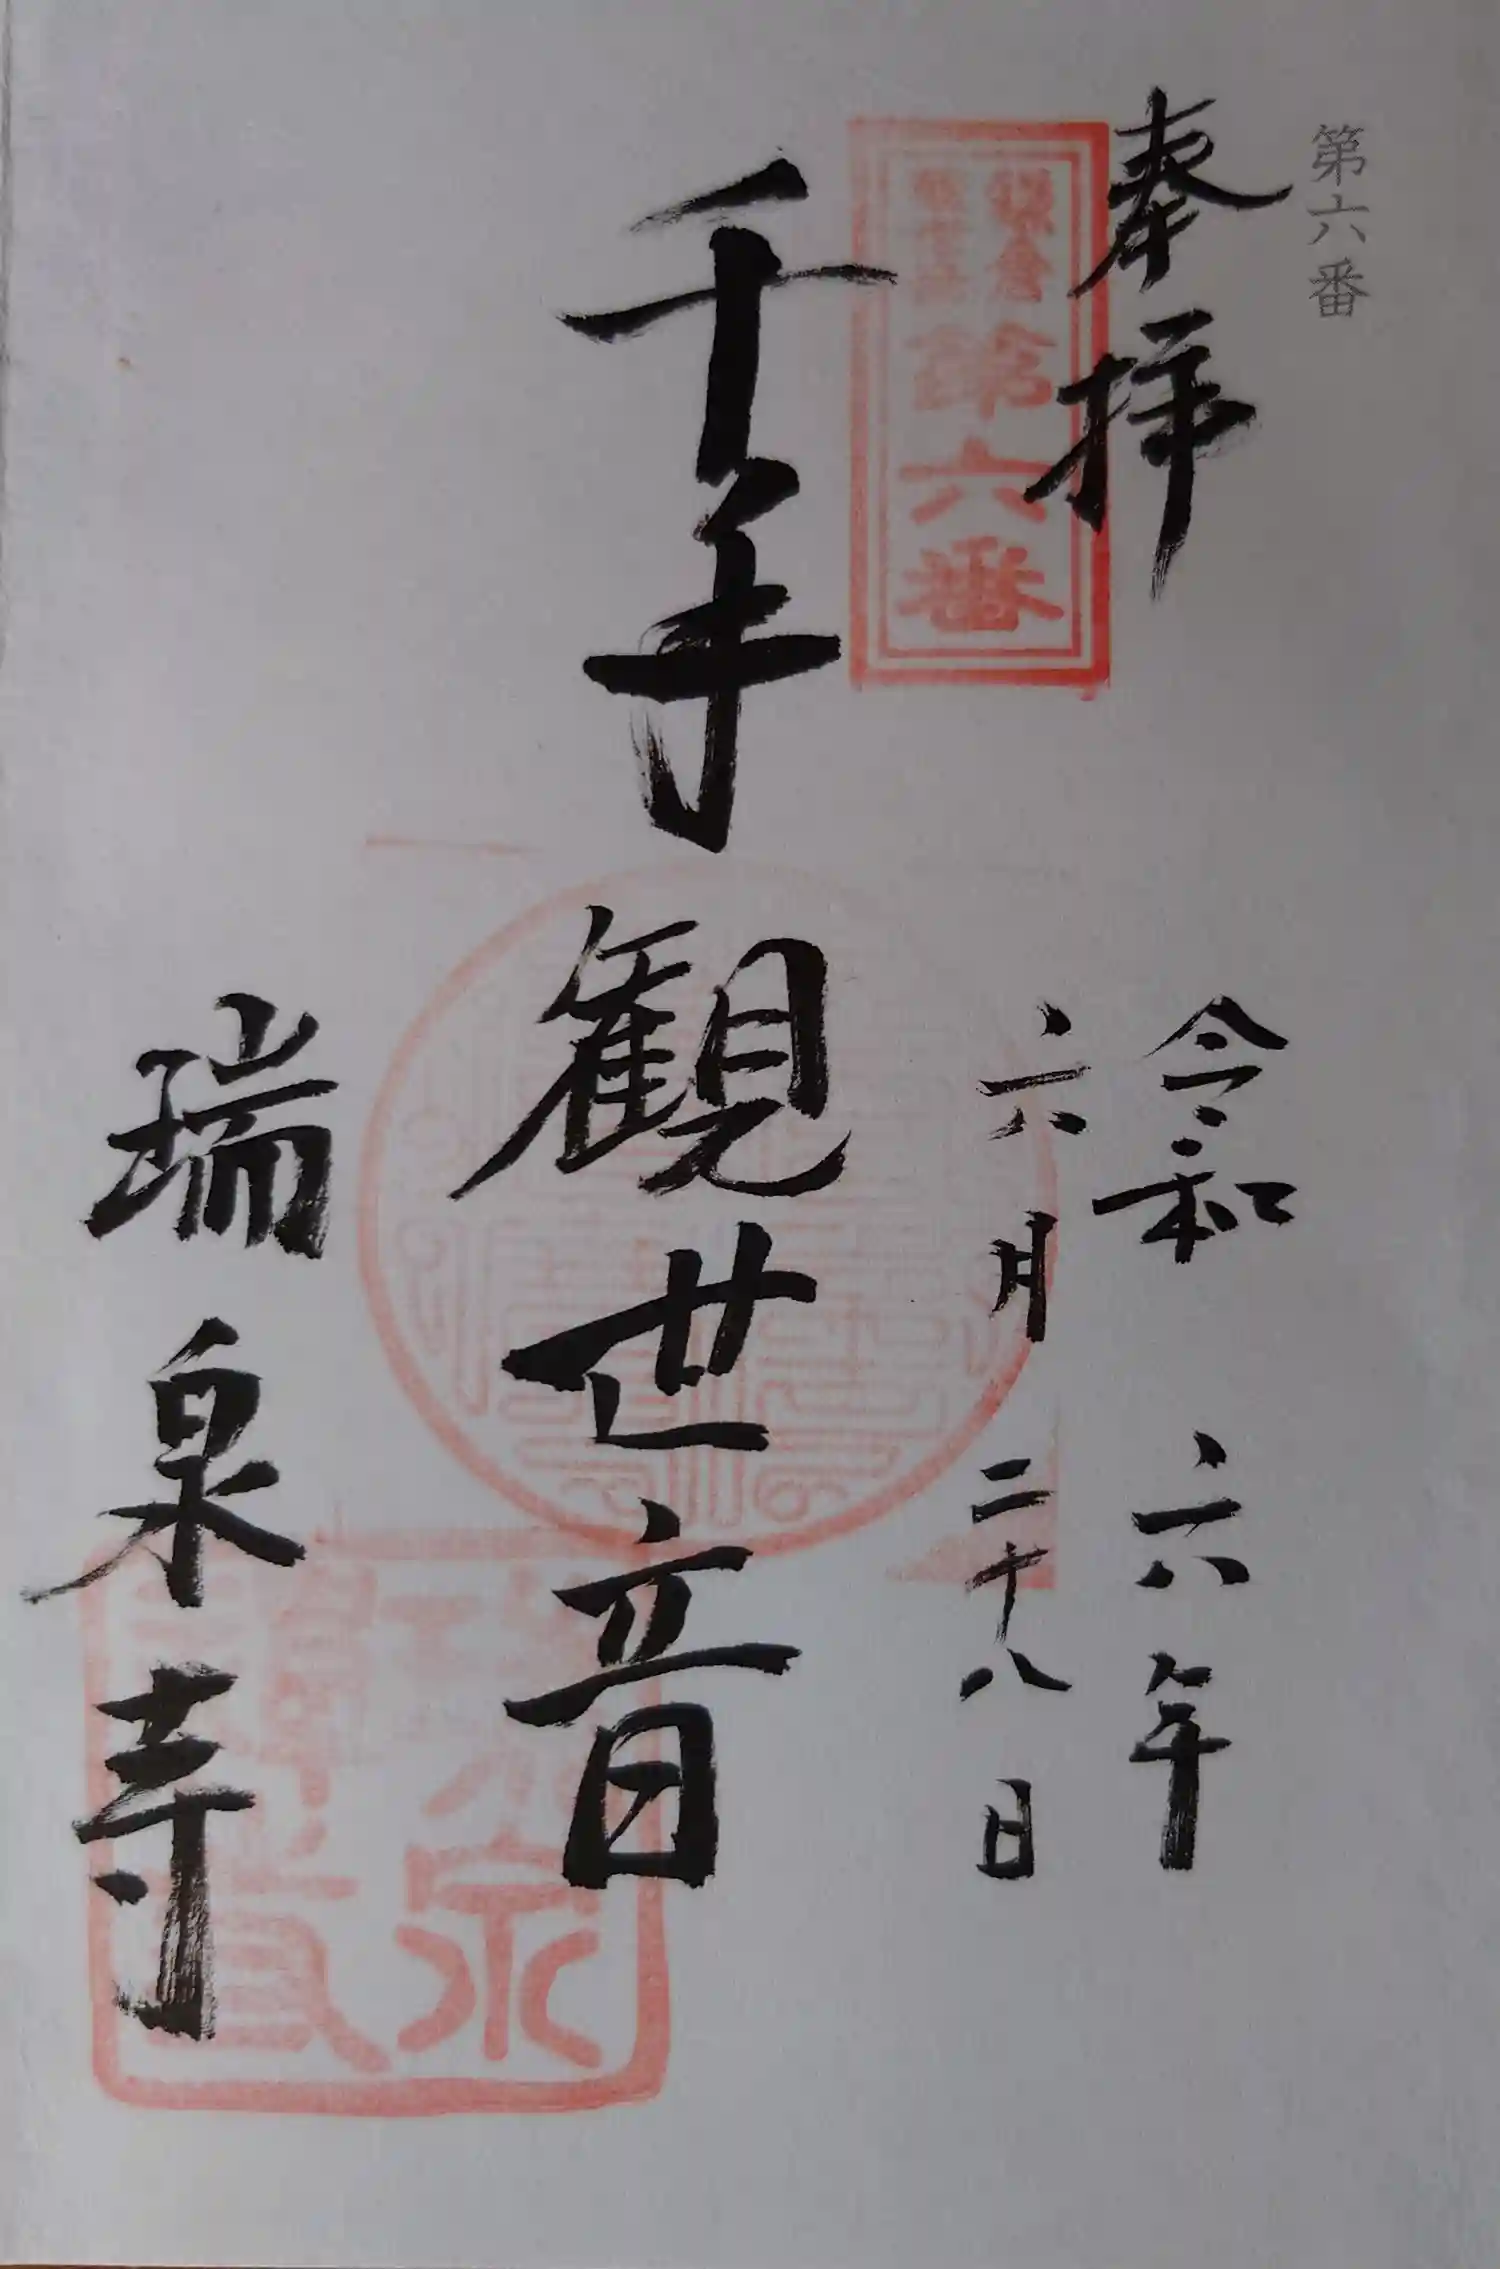 第六番
奉拝
令和六年
六月二十八日
鎌倉
第六番
千手観世音
瑞泉寺